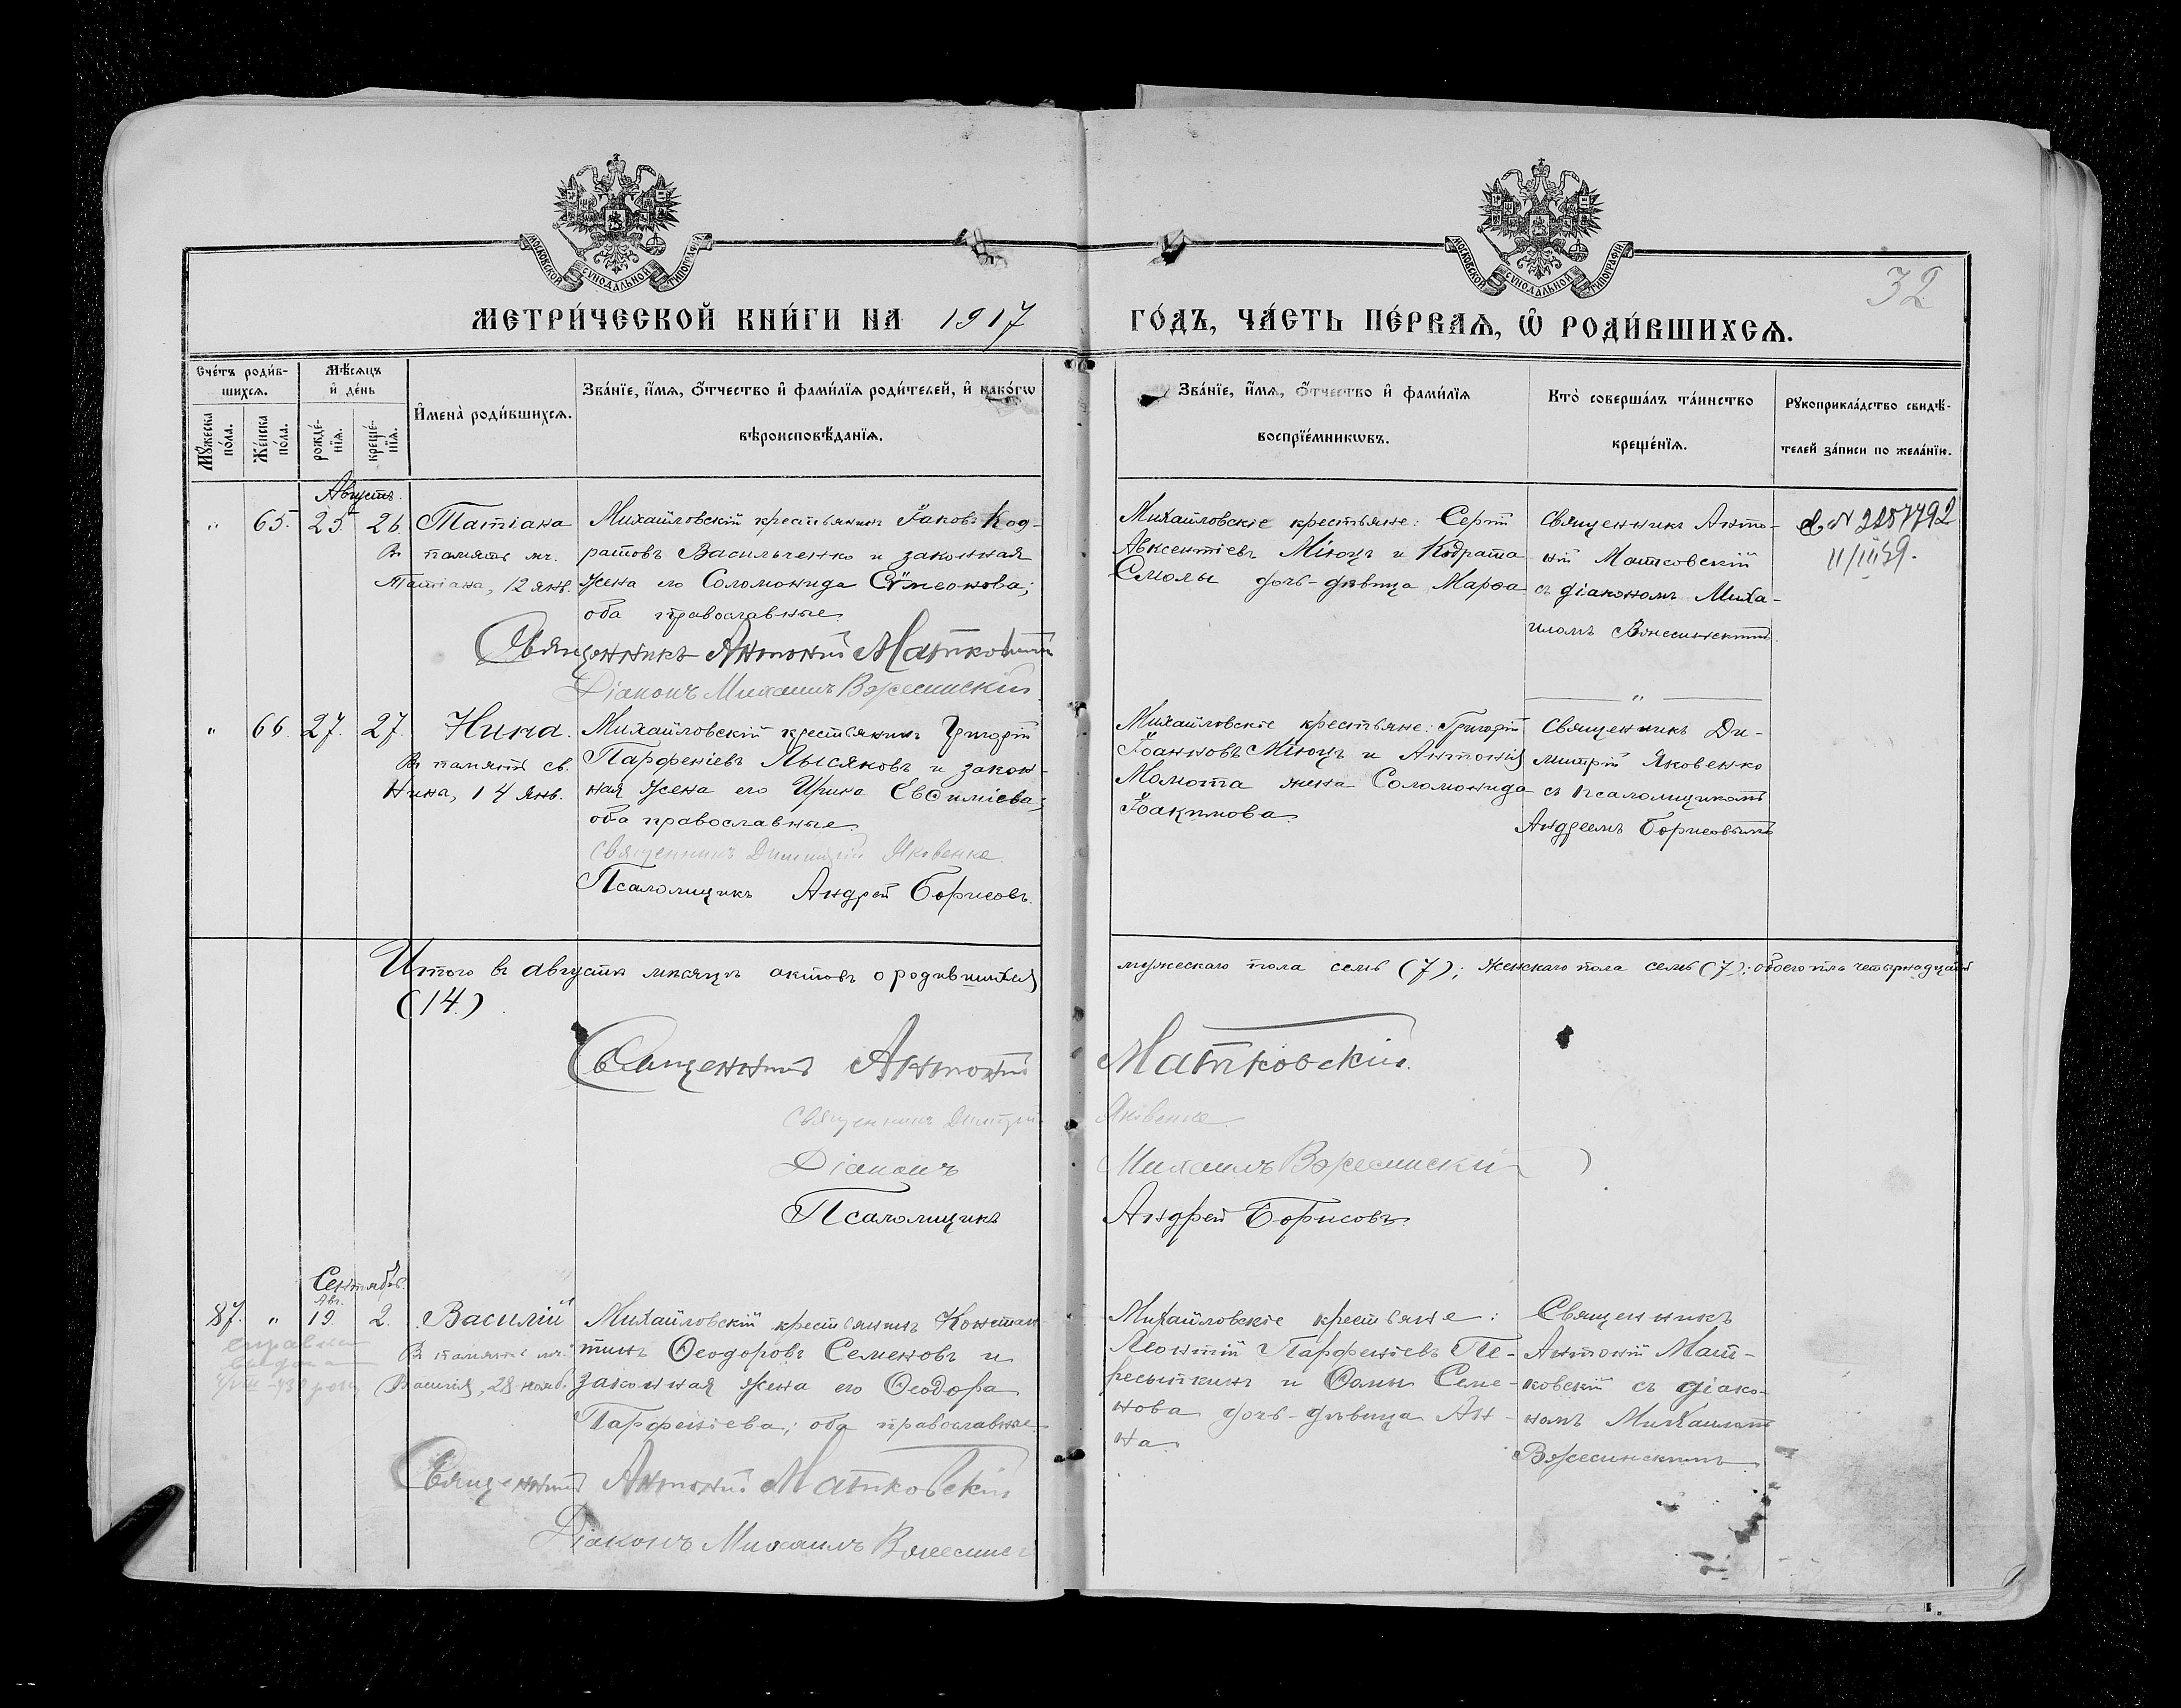 МОСКОВСКОЙ СѴНОДАЛЬНОЙ ТИПОГРАФІИ
МОСКОВСКОЙ СѴНОДАЛЬНОЙ ТИПОГРАФІИ
32
МЕТРИ́ЧЕСКОЙ КНИ́ГИ НА 1917
ГО́ДЪ, ЧА́СТЬ ПЕ́РВАѦ, Ѡ РОДИ́ВШИХСѦ.
Сче́тъ роди́в-
шихсѧ.
Мѣ́сѧцъ
и҆ де́нь
И҆мена̀ роди́вшихсѧ.
Зва́нїе, и҆́мѧ, ѻ҆́тчество и҆ фами́лїѧ роди́телей, и҆ како́гѡ
вѣроисповѣ́данїѧ.
Мꙋ́жеска
по́ла.
Же́нска
по́ла.
рожде́-
нїѧ.
креще́-
нїѧ.
Зва́нїе, и҆́мѧ, ѻ҆́тчество и҆ фами́лїѧ
воспрїе́мникѡвъ.
Кто̀ соверша́лъ та́инство
креще́нїѧ.
Рꙋкоприкла́дство свидѣ́-
телей за́писи по жела́нїю.
Августъ.
" 65. 25. 26. Татіана
Въ память мч.
Татіана, 12 янв.
Михайловскій крестьянинъ Іаковъ Код-
ратовъ Васильченко и законная
жена его Соломонида Сѵмеонова;
оба православные.
Священникъ Антоній Матковскій
Діаконъ Михаилъ Вэжесинскій
Михайловскіе крестьяне:
Авксентіевъ Міюцъ и Кодрата
Смолы дочь-дѣвица Марѳа
Священникъ Анто-
ній Матковскій
съ діакономъ Миха-
иломъ
№ 3287792
11/III 39.
"
" 66. 27. 27. Нина.
Въ память св.
Нина, 14 Янв.
Михайловскій крестьянинъ Григорій
Парфеніевъ Лысяковъ и закон-
ная жена его Ирина Евѳиміева;
оба православные.
Священникъ Димитрій Яковенко.
Псаломщикъ Андрей Борисовъ.
Михайловскіе крестьяне: Григорій
Іоанновъ Міюцъ и Антонія
Мамота жена Соломонида
Іоакимова.
Священникъ Ди-
митрій Яковенко
съ псаломщикомъ
Андреемъ Борисовымъ
Итого въ августѣ мѣсяцѣ актовъ о родившихся
мужескаго пола семь (7); женскаго пола семь (7); обоего пола четырнадцать
(14.)
Священникъ Антоній Матковскій.
Священникъ Димитрій Яковенко
Діаконъ Михаилъ Вэжесинскій
Псаломщикъ Андрей Борисовъ.
Сентябрь.
Авг.
87. " 19. 2. Василій
справка
выдана
Въ память мч.
Василія, 28 нояб.
Михайловскій крестьянинъ Констан-
тинъ Ѳеодоровъ Семеновъ и
законная жена его Ѳеодора
Парфеніева; оба православные.
Священникъ Антоній Матковскій
Діаконъ Михаилъ
Михайловскіе крестьяне:
Леонтій Парфеніевъ Пе-
ресыпкинъ и Ѳомы Семе-
нова дочь-дѣвица Ан-
на.
Священникъ
Антоній Мат-
ковскій съ діако-
номъ Михаиломъ
Вэжесинскимъ